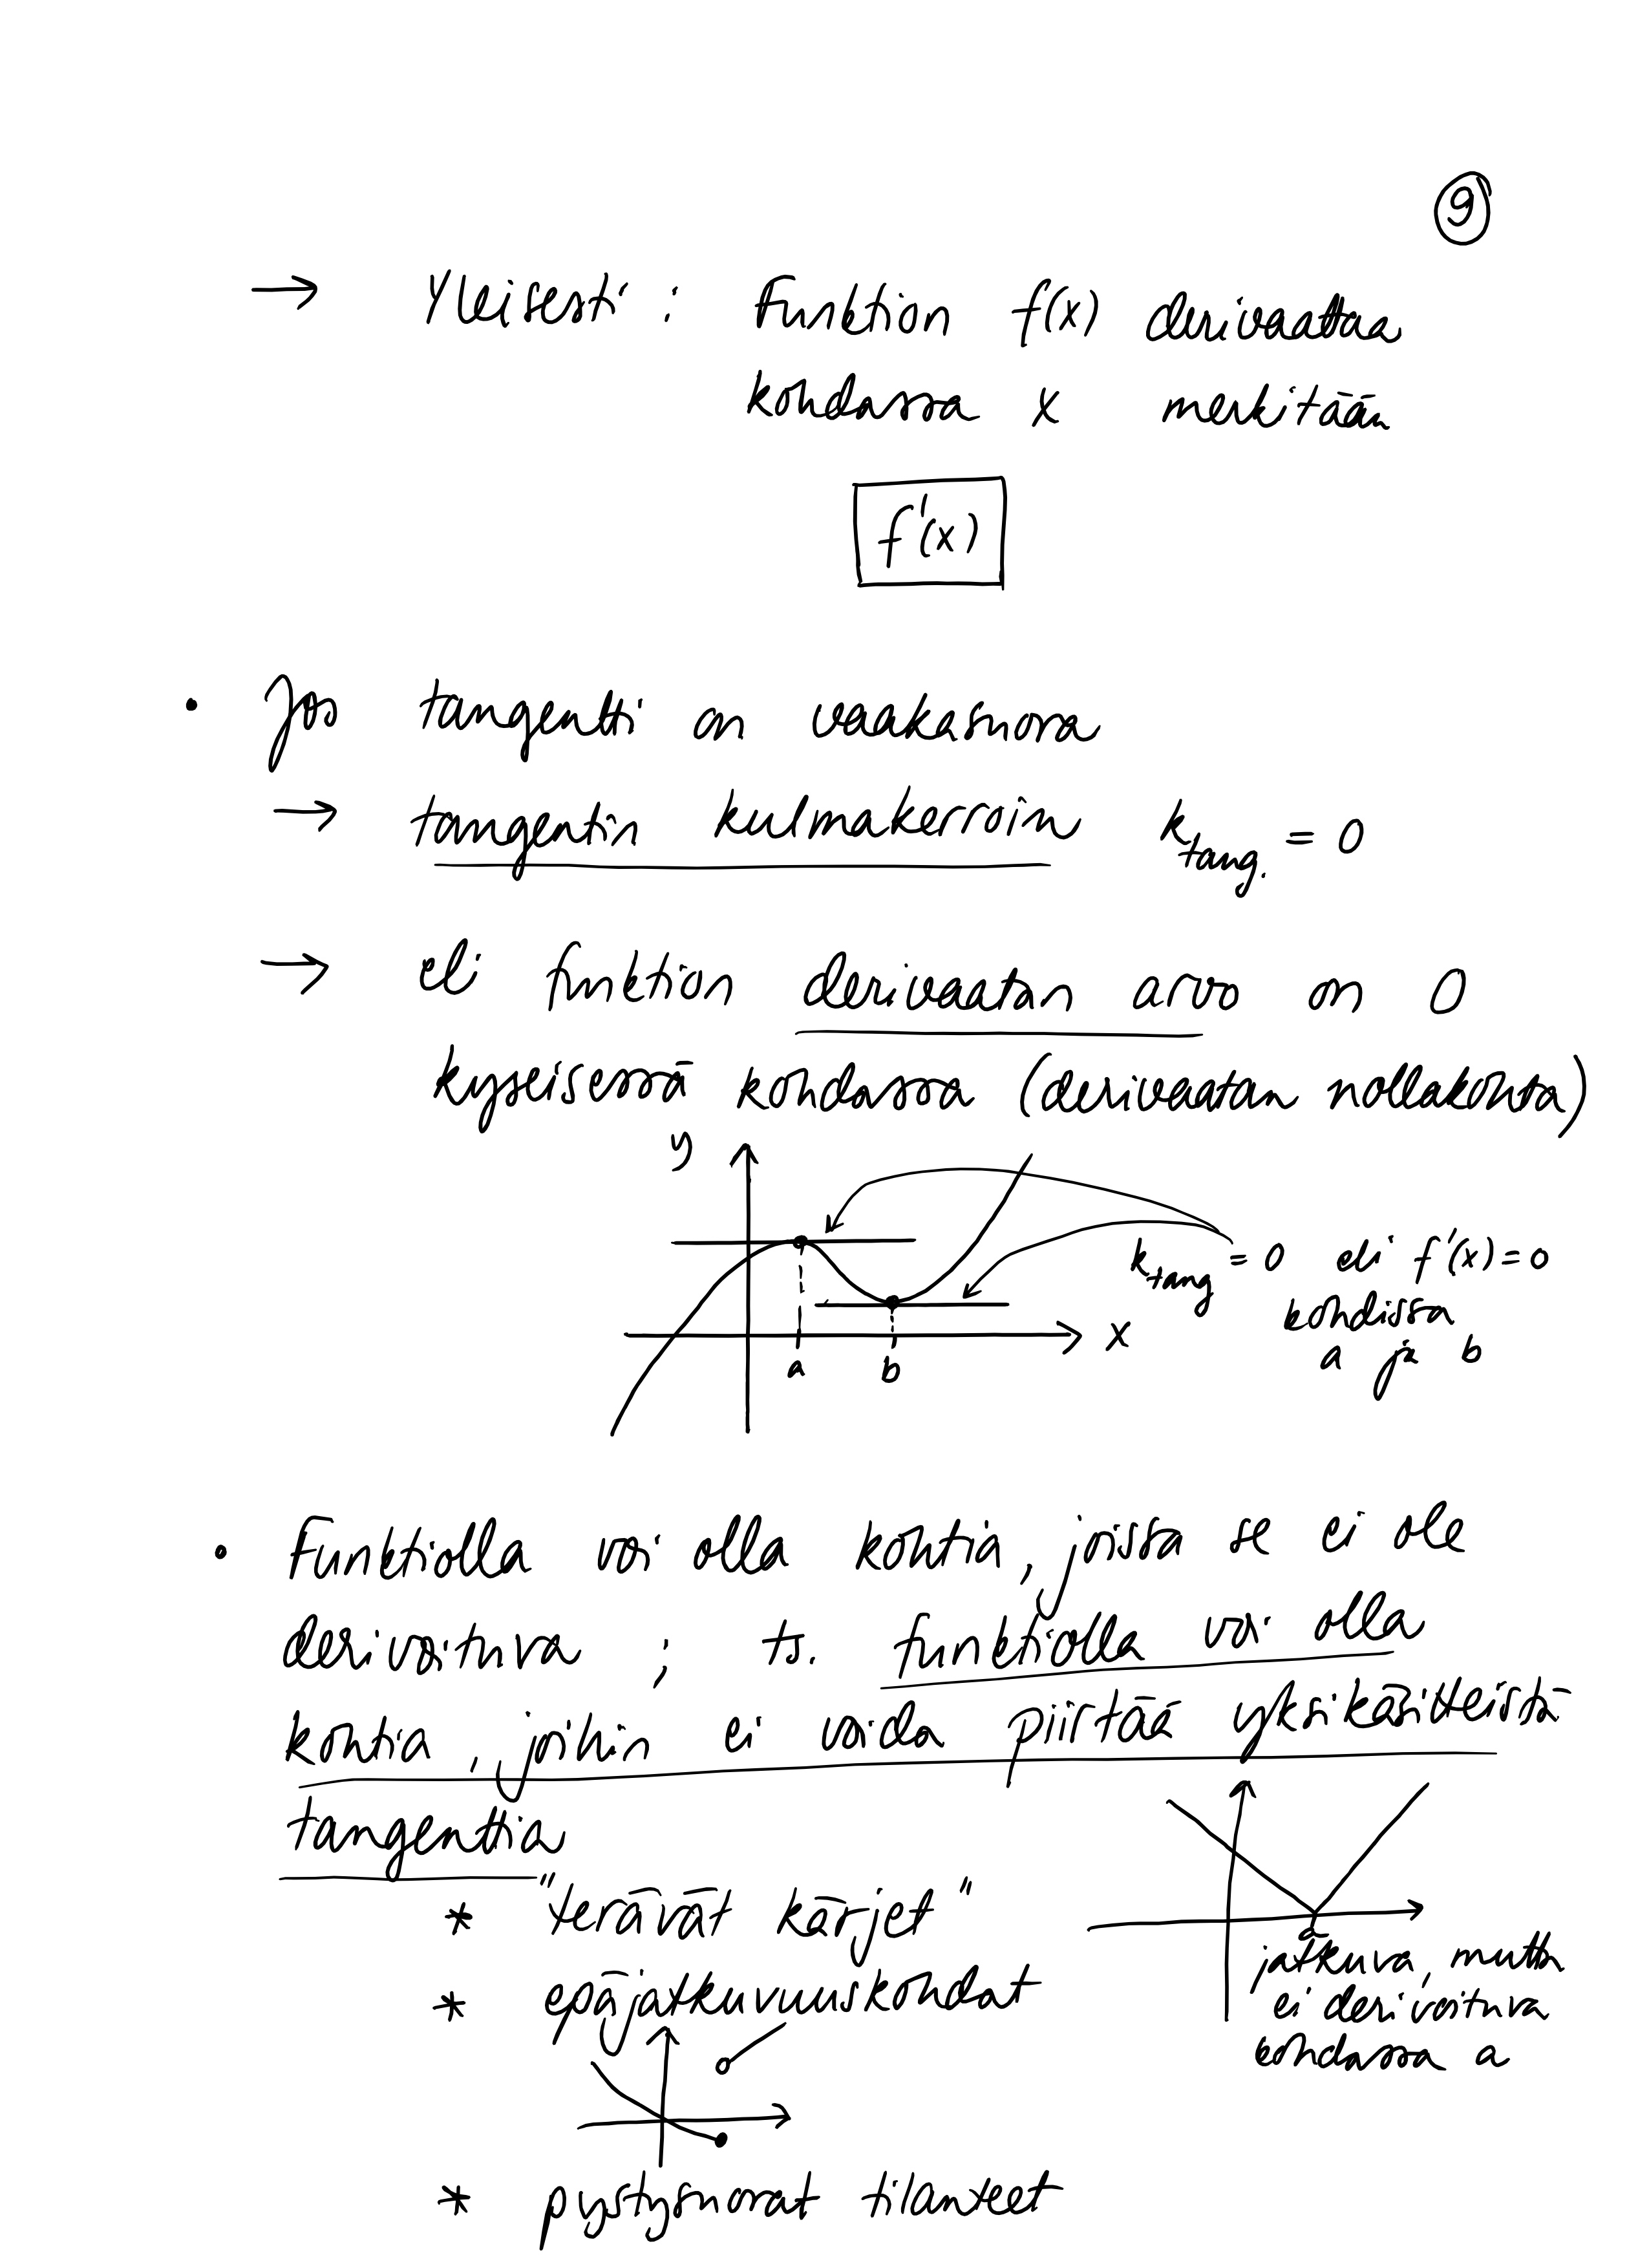 9
→ Yleisesti : Funktion f(x) derivaattaa
kohdassa x merkitään
f'(x)
• Jos tangentti on vaakasuora
→ tangentin kulmakerroin k_tang. = 0
→ eli funktion derivaatan arvo on 0
kyseisessä kohdassa (derivaatan nollakohta)
y
k_tang = 0 eli f'(x) = 0
kohdissa
a ja b
x
a b
• Funktiolla voi olla kohtia, joissa se ei ole
derivoituva ; ts. funktiolla voi olla
kohtia, joihin ei voida piirtää yksikäsitteistä
tangenttia
* "terävät kärjet"
a
jatkuva, mutta
ei derivoituva
kohdassa a
* epäjatkuvuuskohdat
* pystysuorat tilanteet